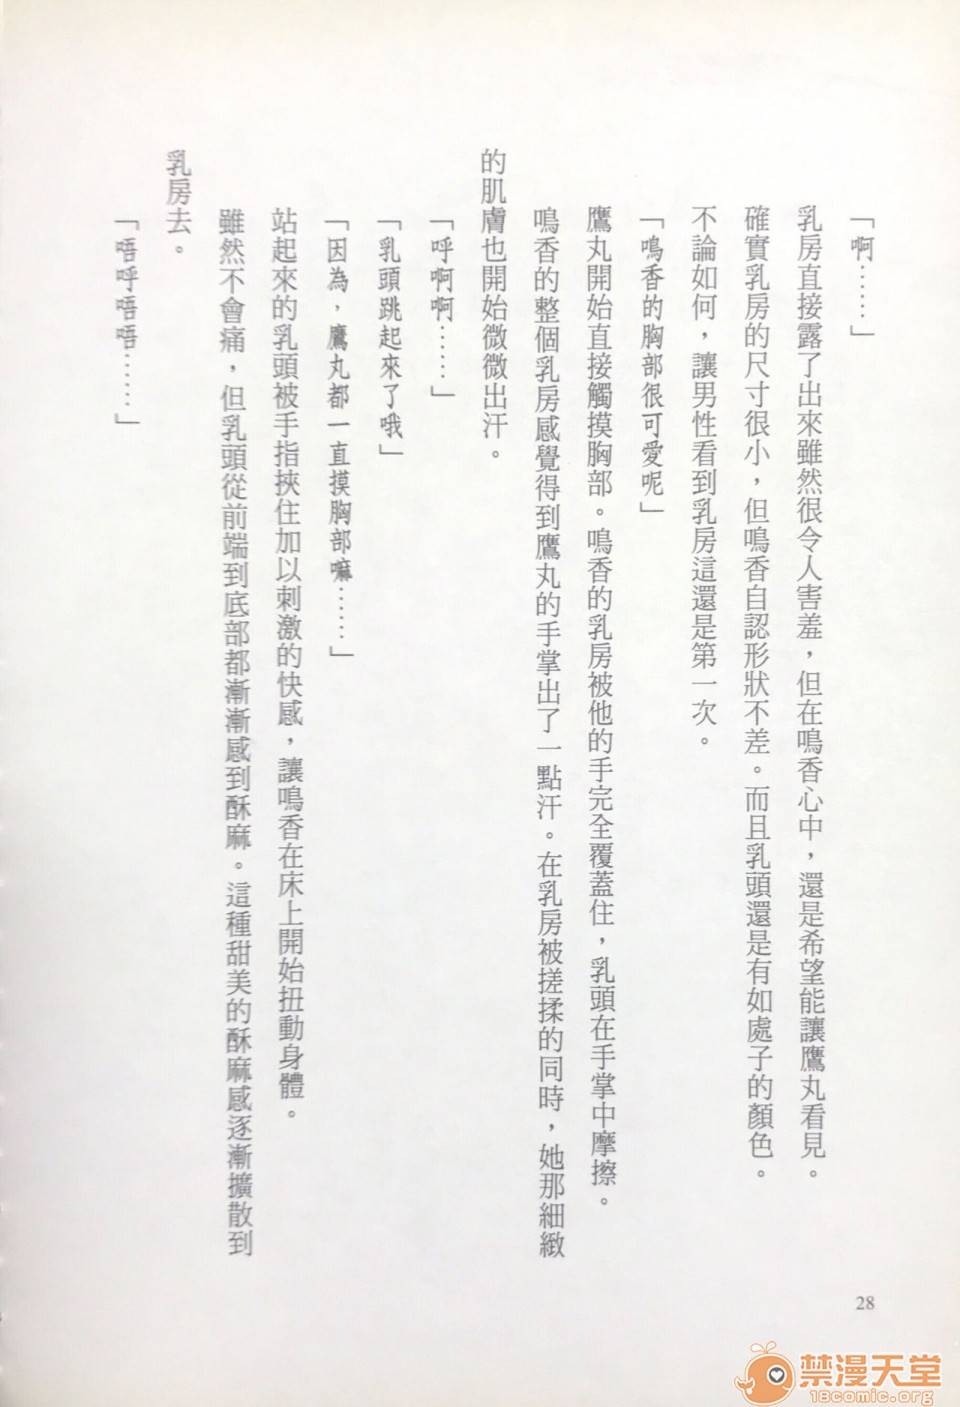 「啊……」
乳房直接露了出來雖然很令人害羞，但在鳴香心中，還是希望能讓鷹丸看見。
確實乳房的尺寸很小，但鳴香自認形狀不差。而且乳頭還是有如處子的顏色。
不論如何，讓男性看到乳房這還是第一次。
「鳴香的胸部很可愛呢」
鷹丸開始直接觸摸胸部。鳴香的乳房被他的手完全覆蓋住，乳頭在手掌中摩擦。
鳴香的整個乳房感覺得到鷹丸的手掌出了一點汗。在乳房被搓揉的同時，她那細緻
的肌膚也開始微微出汗。
「呼啊啊……」
「乳頭跳起來了哦」
「因為，鷹丸都一直摸胸部嘛……」
站起來的乳頭被手指挾住加以刺激的快感，讓鳴香在床上開始扭動身體。
雖然不會痛，但乳頭從前端到底部都漸漸感到酥麻。這種甜美的酥麻感逐漸擴散到
乳房去。
「唔呼唔唔……」
28
禁漫天堂
18comic.org